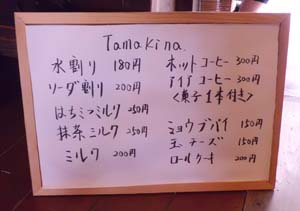 Tamakina.
水割り 180円
ソーダ割り 200円
はちみつミルク 250円
抹茶ミルク 250円
ミルク 200円
ホットコーヒー 300円
アイスコーヒー 300円
<菓子1本付き>
150円
150円
ロールケーキ 200円